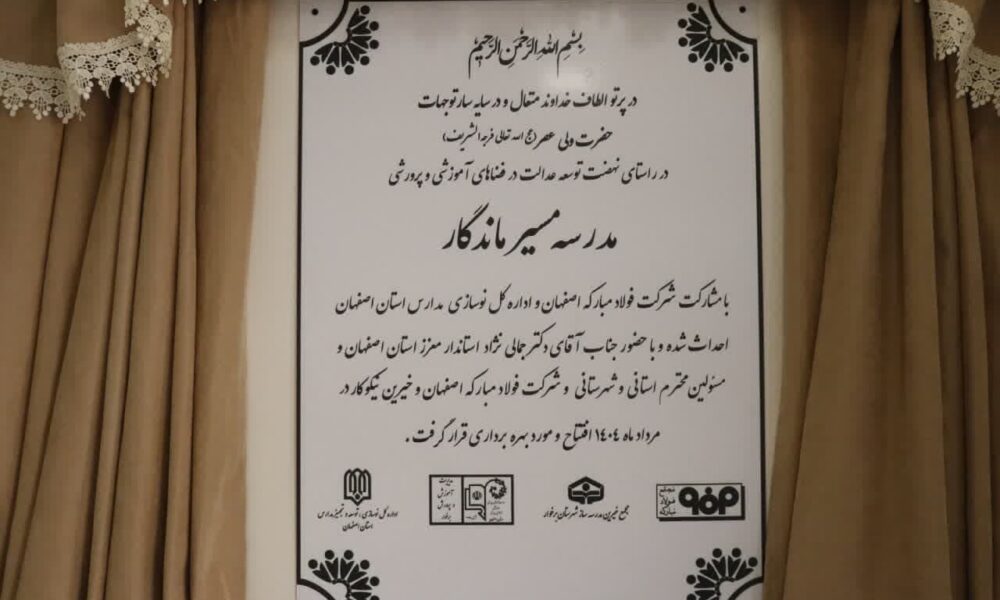 بسم الله الرحمن الرحیم
در پرتو الطاف خداوند متعال و در سایه سار توجهات
حضرت ولی عصر (عج الله تعالی فرجه الشریف)
در راستای نهضت توسعه عدالت در فضاهای آموزشی و پرورشی
مدرسه مسیر ماندگار
با مشارکت شرکت فولاد مبارکه اصفهان و اداره کل نوسازی مدارس استان اصفهان
احداث شده و با حضور جناب آقای دکتر جمالی نژاد استاندار معزز استان اصفهان و
مسئولین محترم استانی و شهرستانی و شرکت فولاد مبارکه اصفهان و خیرین نیکوکار در
مرداد ماه ۱۴۰۴ افتتاح و مورد بهره برداری قرار گرفت .
مجتمع
فولاد
مبارکه
مجمع خیرین مدرسه ساز شهرستان برخوار
مدیریت
آموزش
و پرورش
برخوار
اداره کل نوسازی، توسعه و تجهیز مدارس
استان اصفهان